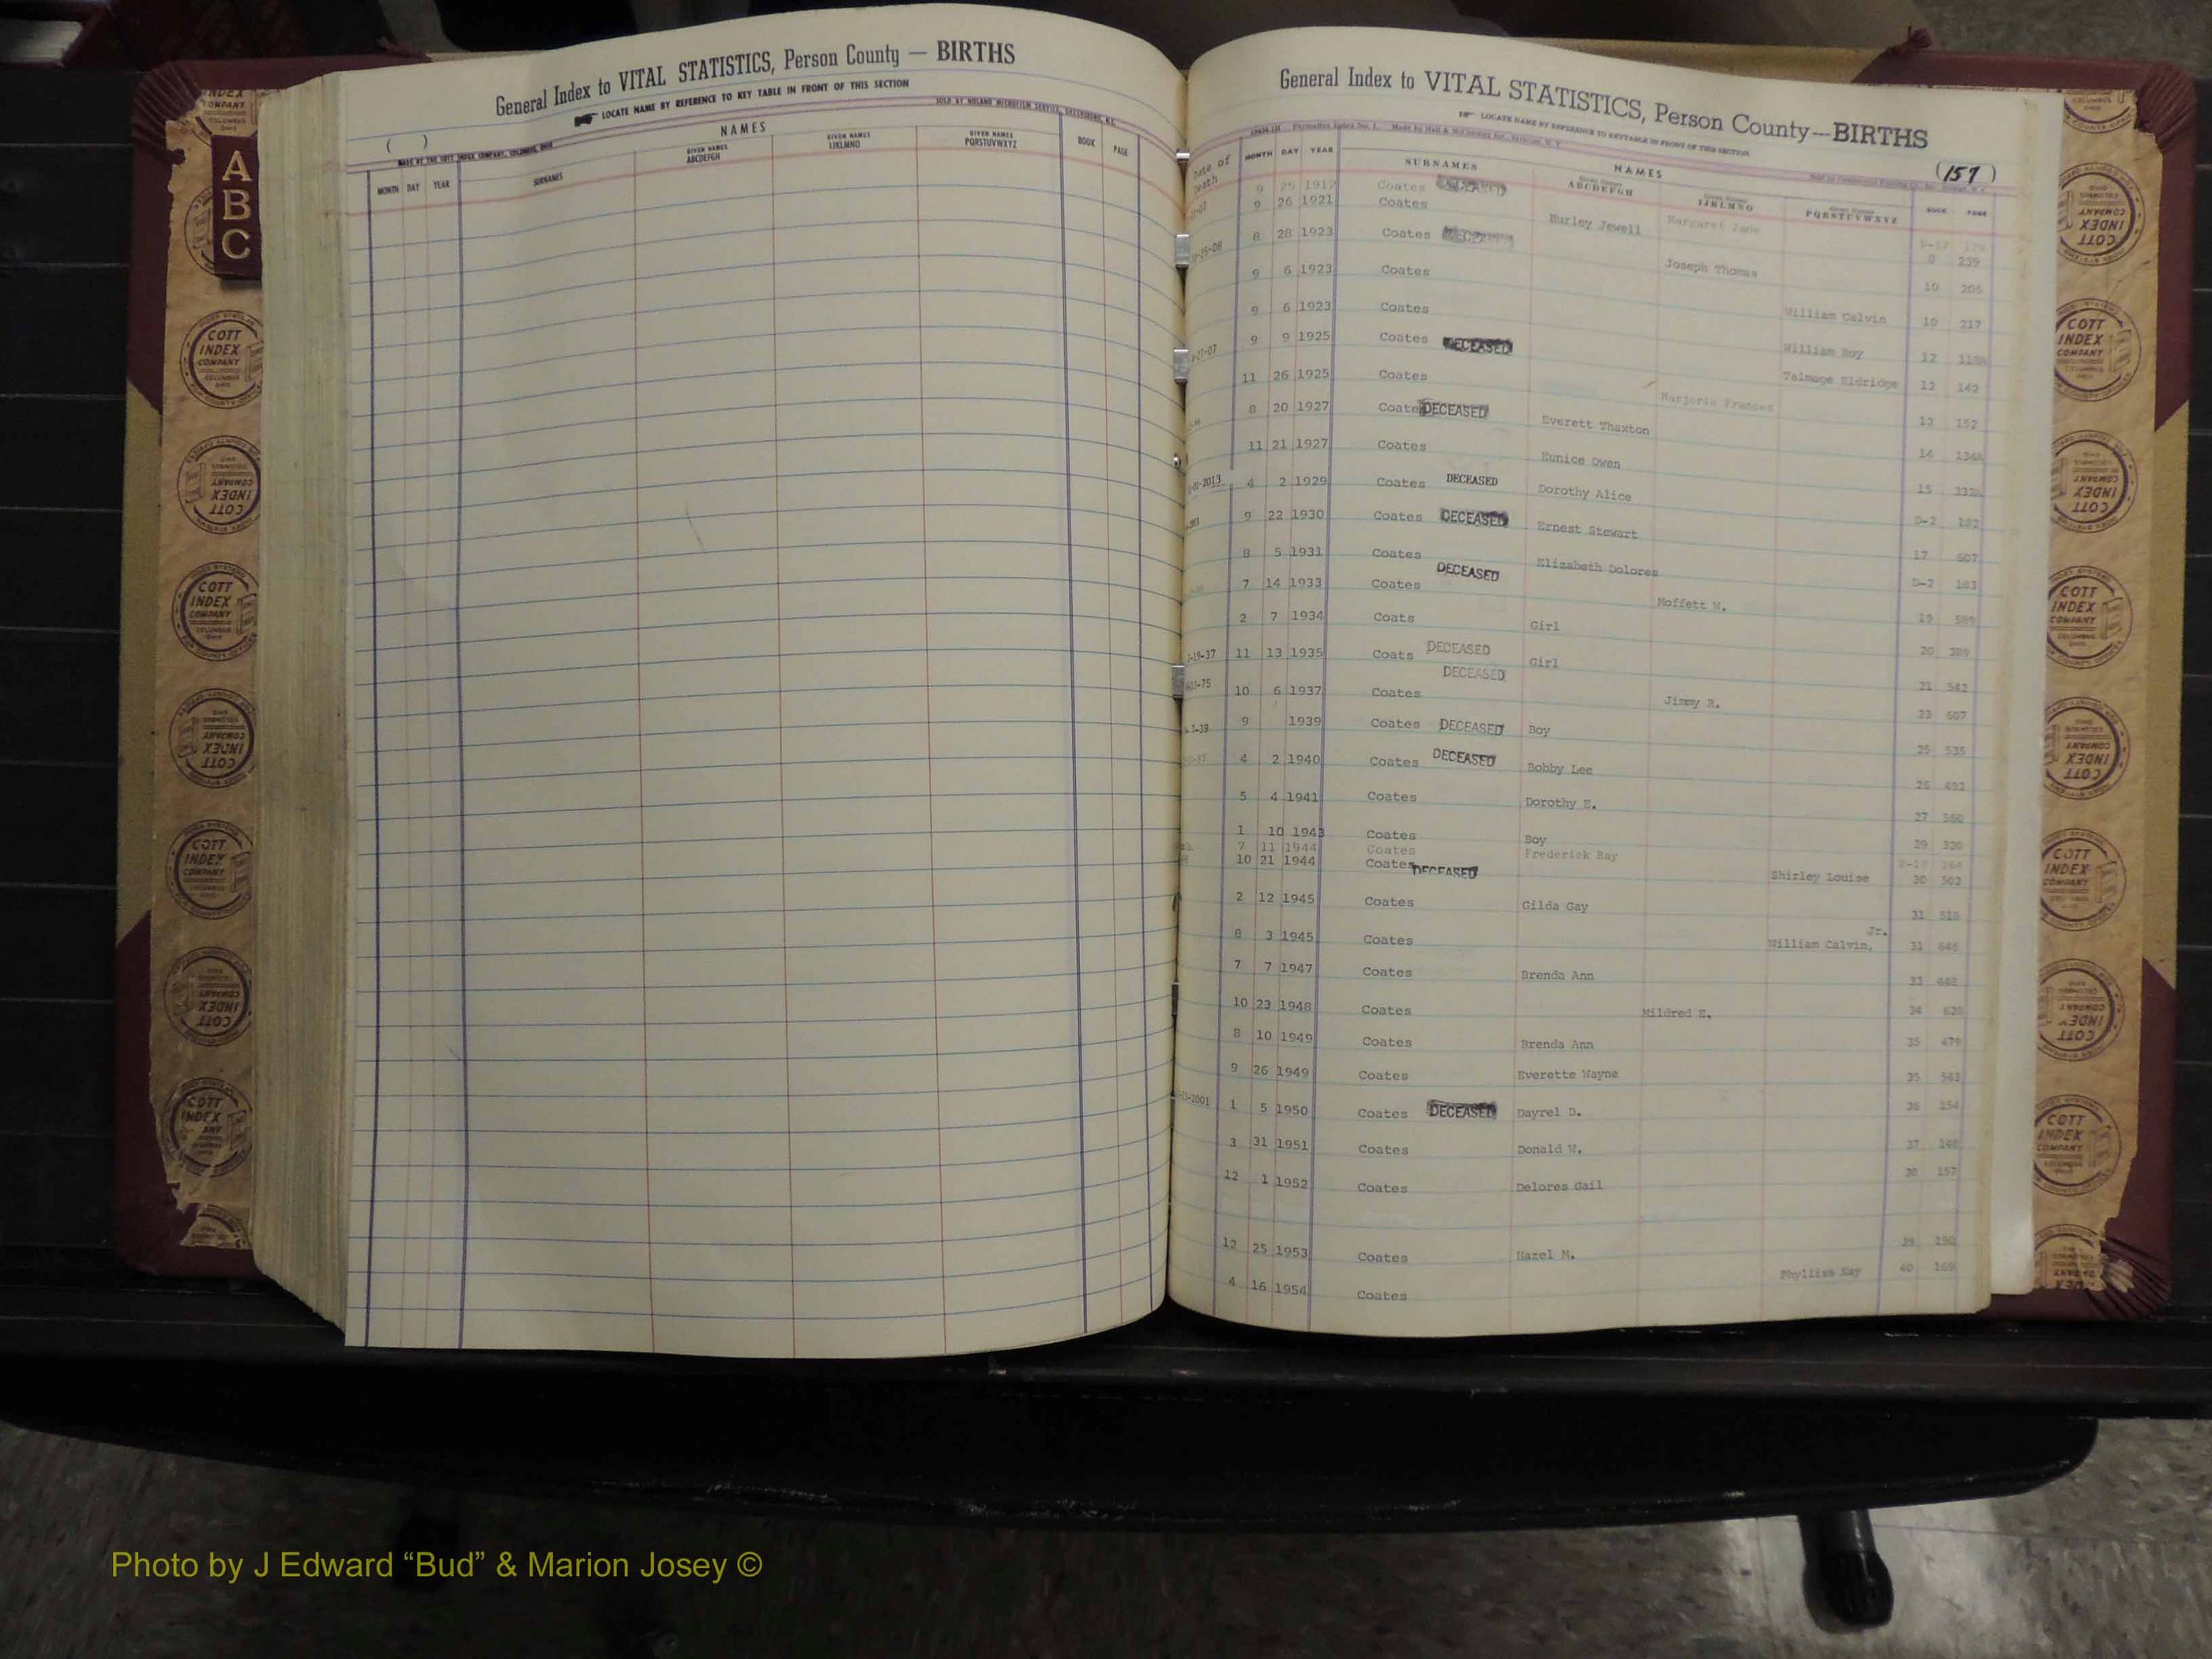 General Index to VITAL STATISTICS, Person County — BIRTHS
LOCATE NAME BY REFERENCE TO KEY TABLE IN FRONT OF THIS SECTION
SOLD BY NOLAND MICROFILM SERVICE, GREENSBORO, N.C.
( )
MADE BY THE COTT INDEX COMPANY, COLUMBUS, OHIO
NAMES
MONTH DAY YEAR SURNAMES GIVEN NAMES ABCDEFGH GIVEN NAMES IJKLMNO GIVEN NAMES PQRSTUVWXYZ BOOK PAGE
A
B
C
General Index to VITAL STATISTICS, Person County—BIRTHS
LOCATE NAME BY REFERENCE TO KEY TABLE IN FRONT OF THIS SECTION
(157)
Date of Death MONTH DAY YEAR SURNAMES NAMES
Given Names ABCDEFGH Given Names IJKLMNO Given Names PQRSTUVWXYZ BOOK PAGE
9 25 1917 Coates DECEASED Margaret Jane
9 26 1921 Coates Hurley Jewell 8 239
8 28 1923 Coates DECEASED Joseph Thomas 10 205
9 6 1923 Coates William Calvin 10 217
9 6 1923 Coates William Roy 12
9 9 1925 Coates DECEASED Talmage Eldridge 12 142
11 26 1925 Coates Marjorie Frances 12 152
8 20 1927 Coates DECEASED Everett Thaxton 14 134A
11 21 1927 Coates Eunice Owen 15
-2013 4 2 1929 Coates DECEASED Dorothy Alice D-2 182
9 22 1930 Coates DECEASED Ernest Stewart 17 607
8 5 1931 Coates Elizabeth Dolores D-2 183
7 14 1933 Coates DECEASED Moffett W. 19
2 7 1934 Coats Girl 20 389
-19-37 11 13 1935 Coats DECEASED Girl 21 562
-75 10 6 1937 Coates DECEASED Jimmy R. 23 607
-39 9 1939 Coates DECEASED Boy 25 535
4 2 1940 Coates DECEASED Bobby Lee 26 492
5 4 1941 Coates Dorothy E. 27 560
1 10 1943 Coates Boy 29 320
7 11 1944 Coates Frederick Ray
10 21 1944 Coates DECEASED Shirley Louise 30 502
2 12 1945 Coates Gilda Gay 31 518
8 3 1945 Coates William Calvin, Jr. 31 646
7 7 1947 Coates Brenda Ann 33 448
10 23 1948 Coates Mildred E. 34 620
8 10 1949 Coates Brenda Ann 35 479
9 26 1949 Coates Everette Wayne 35 563
-2001 1 5 1950 Coates DECEASED Dayrel D. 36 154
3 31 1951 Coates Donald W. 37
12 1 1952 Coates Delores Gail 38 157
12 25 1953 Coates Hazel M. 39 190
4 16 1954 Coates Phyllis Kay 40 168
COTT INDEX COMPANY COLUMBUS OHIO
Photo by J Edward “Bud” & Marion Josey ©